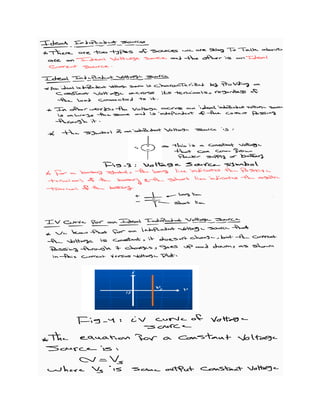 Ideal Independent sources
* There are two types of sources we are going to talk about
are an Ideal Voltage Source and the other is an Ideal
Current Source.
Ideal Independent Voltage source
* An ideal independent voltage source is characterized by providing a
constant voltage across its terminals, regardless of
the load connected to it.
* In other words the voltage across an ideal independent voltage source
is always the same and is independent of the current passing
through it.
* the symbol of an independent voltage source is:
→ This is a constant voltage
that can come from
Power supply or battery
Fig. 3: Voltage Source symbol
* For a battery symbol, the long line indicates the positive
terminal of the battery & the short line indicates the negative
terminal of the battery.
+ ← long line
- ← short line
IV Curve for an Ideal Independent Voltage Source
* We know that for an independent voltage source that
the voltage is constant, it doesn't change, but the current
passing through it changes, goes up and down, as shown
in this current versus voltage plot.
i
Vs
v
Fig-4: iV curve of Voltage
Source
* The equation for a constant Voltage
Source is:
V = Vs
where Vs is some output constant Voltage